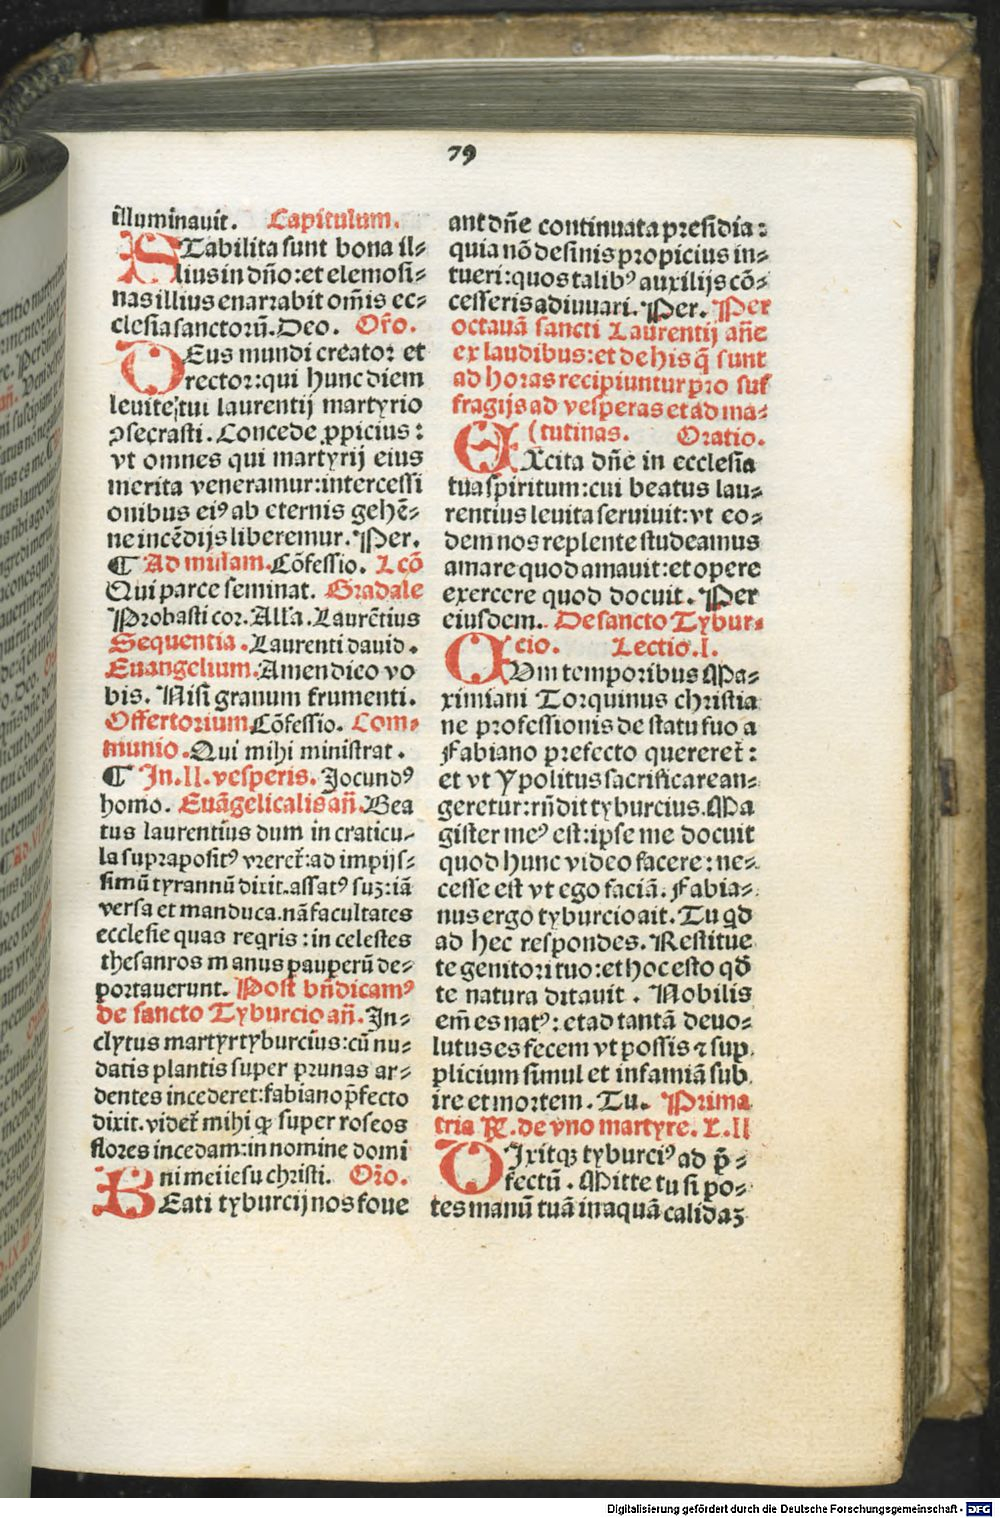 79
illuminauit. Capitulum.
STabilita sunt bona il⸗
lius in dño: et elemosi⸗
nas illius enarrabit om̄is ec⸗
clesia sanctorū. Deo. Or̄o.
DEus mundi creator et
rector: qui hunc diem
leuite tui laurentij martyrio
ↄsecrasti. Concede ꝓpicius:
vt omnes qui martyrij eius
merita veneramur: intercessi
onibus eiꝰ ab eternis gehē⸗
ne incēdijs liberemur. Per.
¶ Ad missam. Cōfessio. Lcō
Qui parce seminat. Gradale
Probasti cor. Alľa. Laurētius
Sequentia. Laurenti dauid.
Euangelium. Amen dico vo
bis. Nisi granum frumenti.
Offertorium Cōfessio. Com⸗
munio. Qui mihi ministrat.
¶ In .II. vesperis. Jocundꝰ
homo. Euāgelicalis añ. Bea
tus laurentius dum in craticu⸗
la suprapositꝰ vreret̄: ad impijs⸗
simū tyrannū dixit. assatꝰ suꝫ: iā
versa et manduca. nā facultates
ecclesie quas reqris: in celestes
thesauros manus pauperū de⸗
portauerunt. Post bn̄dicamꝰ
de sancto Tyburcio añ. In⸗
clytus martyr tyburcius: cū nu⸗
datis plantis super prunas ar⸗
dentes incederet: fabiano p̄fecto
dixit. videt̄ mihi ꝙ super roseos
flores incedam: in nomine domi
ni mei iesu christi. Or̄o.
BEati tyburcij nos foue
ant dñe continuata presidia:
quia nō desinis propicius in⸗
tueri: quos talibꝰ auxilijs cō⸗
cesseris adiuuari. Per. Per
octauā sancti Laurentij añe
ex laudibus: et de his q̄ sunt
ad horas recipiuntur pro suf
fragijs ad vesperas et ad ma⸗
(tutinas. Oratio.
EXcita dñe in ecclesia
tua spiritum: cui beatus lau⸗
rentius leuita seruiuit: vt eo⸗
dem nos replente studeamus
amare quod amauit: et opere
exercere quod docuit. Per
eiusdem. De sancto Tybur⸗
cio. Lectio .I.
CVm temporibus Ma⸗
ximiani Torquinus christia
ne professionis de statu suo a
Fabiano prefecto quereret̄:
et vt Ypolitus sacrificare an⸗
geretur: rn̄dit tyburcius. Ma
gister meꝰ est: ipse me docuit
quod hunc video facere: ne⸗
cesse est vt ego faciā. Fabia⸗
nus ergo tyburcio ait. Tu qd̄
ad hec respondes. Restitue
te genitori tuo: et hoc esto qd̄
te natura ditauit. Nobilis
em̄ es natꝰ: et ad tantā deuo⸗
lutus es fecem vt possis ⁊ sup
plicium simul et infamiā sub
ire et mortem. Tu. Prima
tria ℟. de vno martyre. L.II
DIxitqꝫ tyburciꝰ ad p̄⸗
fectū. Mitte tu si po⸗
tes manū tuā in aquā calidaꝫ
Digitalisierung gefördert durch die Deutsche Forschungsgemeinschaft - DFG